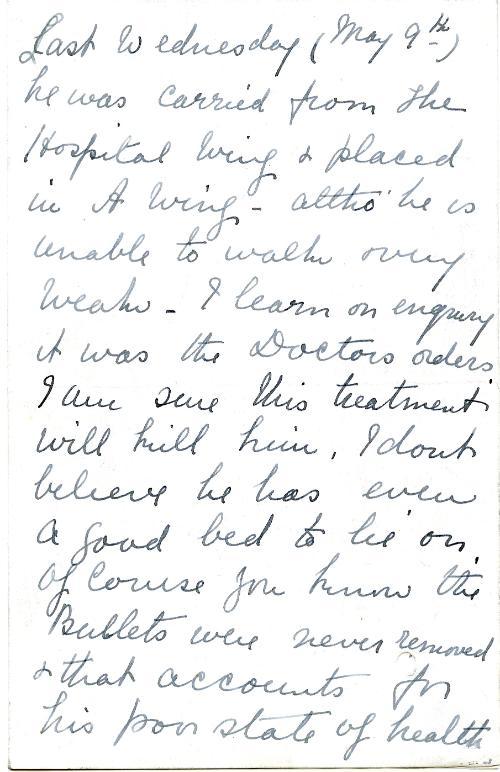 Last Wednesday (May 9th)
he was carried from the
Hospital Wing & placed
in A Wing - altho' he is
unable to walk & very
weak - I learn on enquiry
it was the Doctors orders
I am sure this treatment
will kill him, I dont
believe he has even
a good bed to lie on,
of course you know the
Bullets were never removed
& that accounts for
his poor state of health